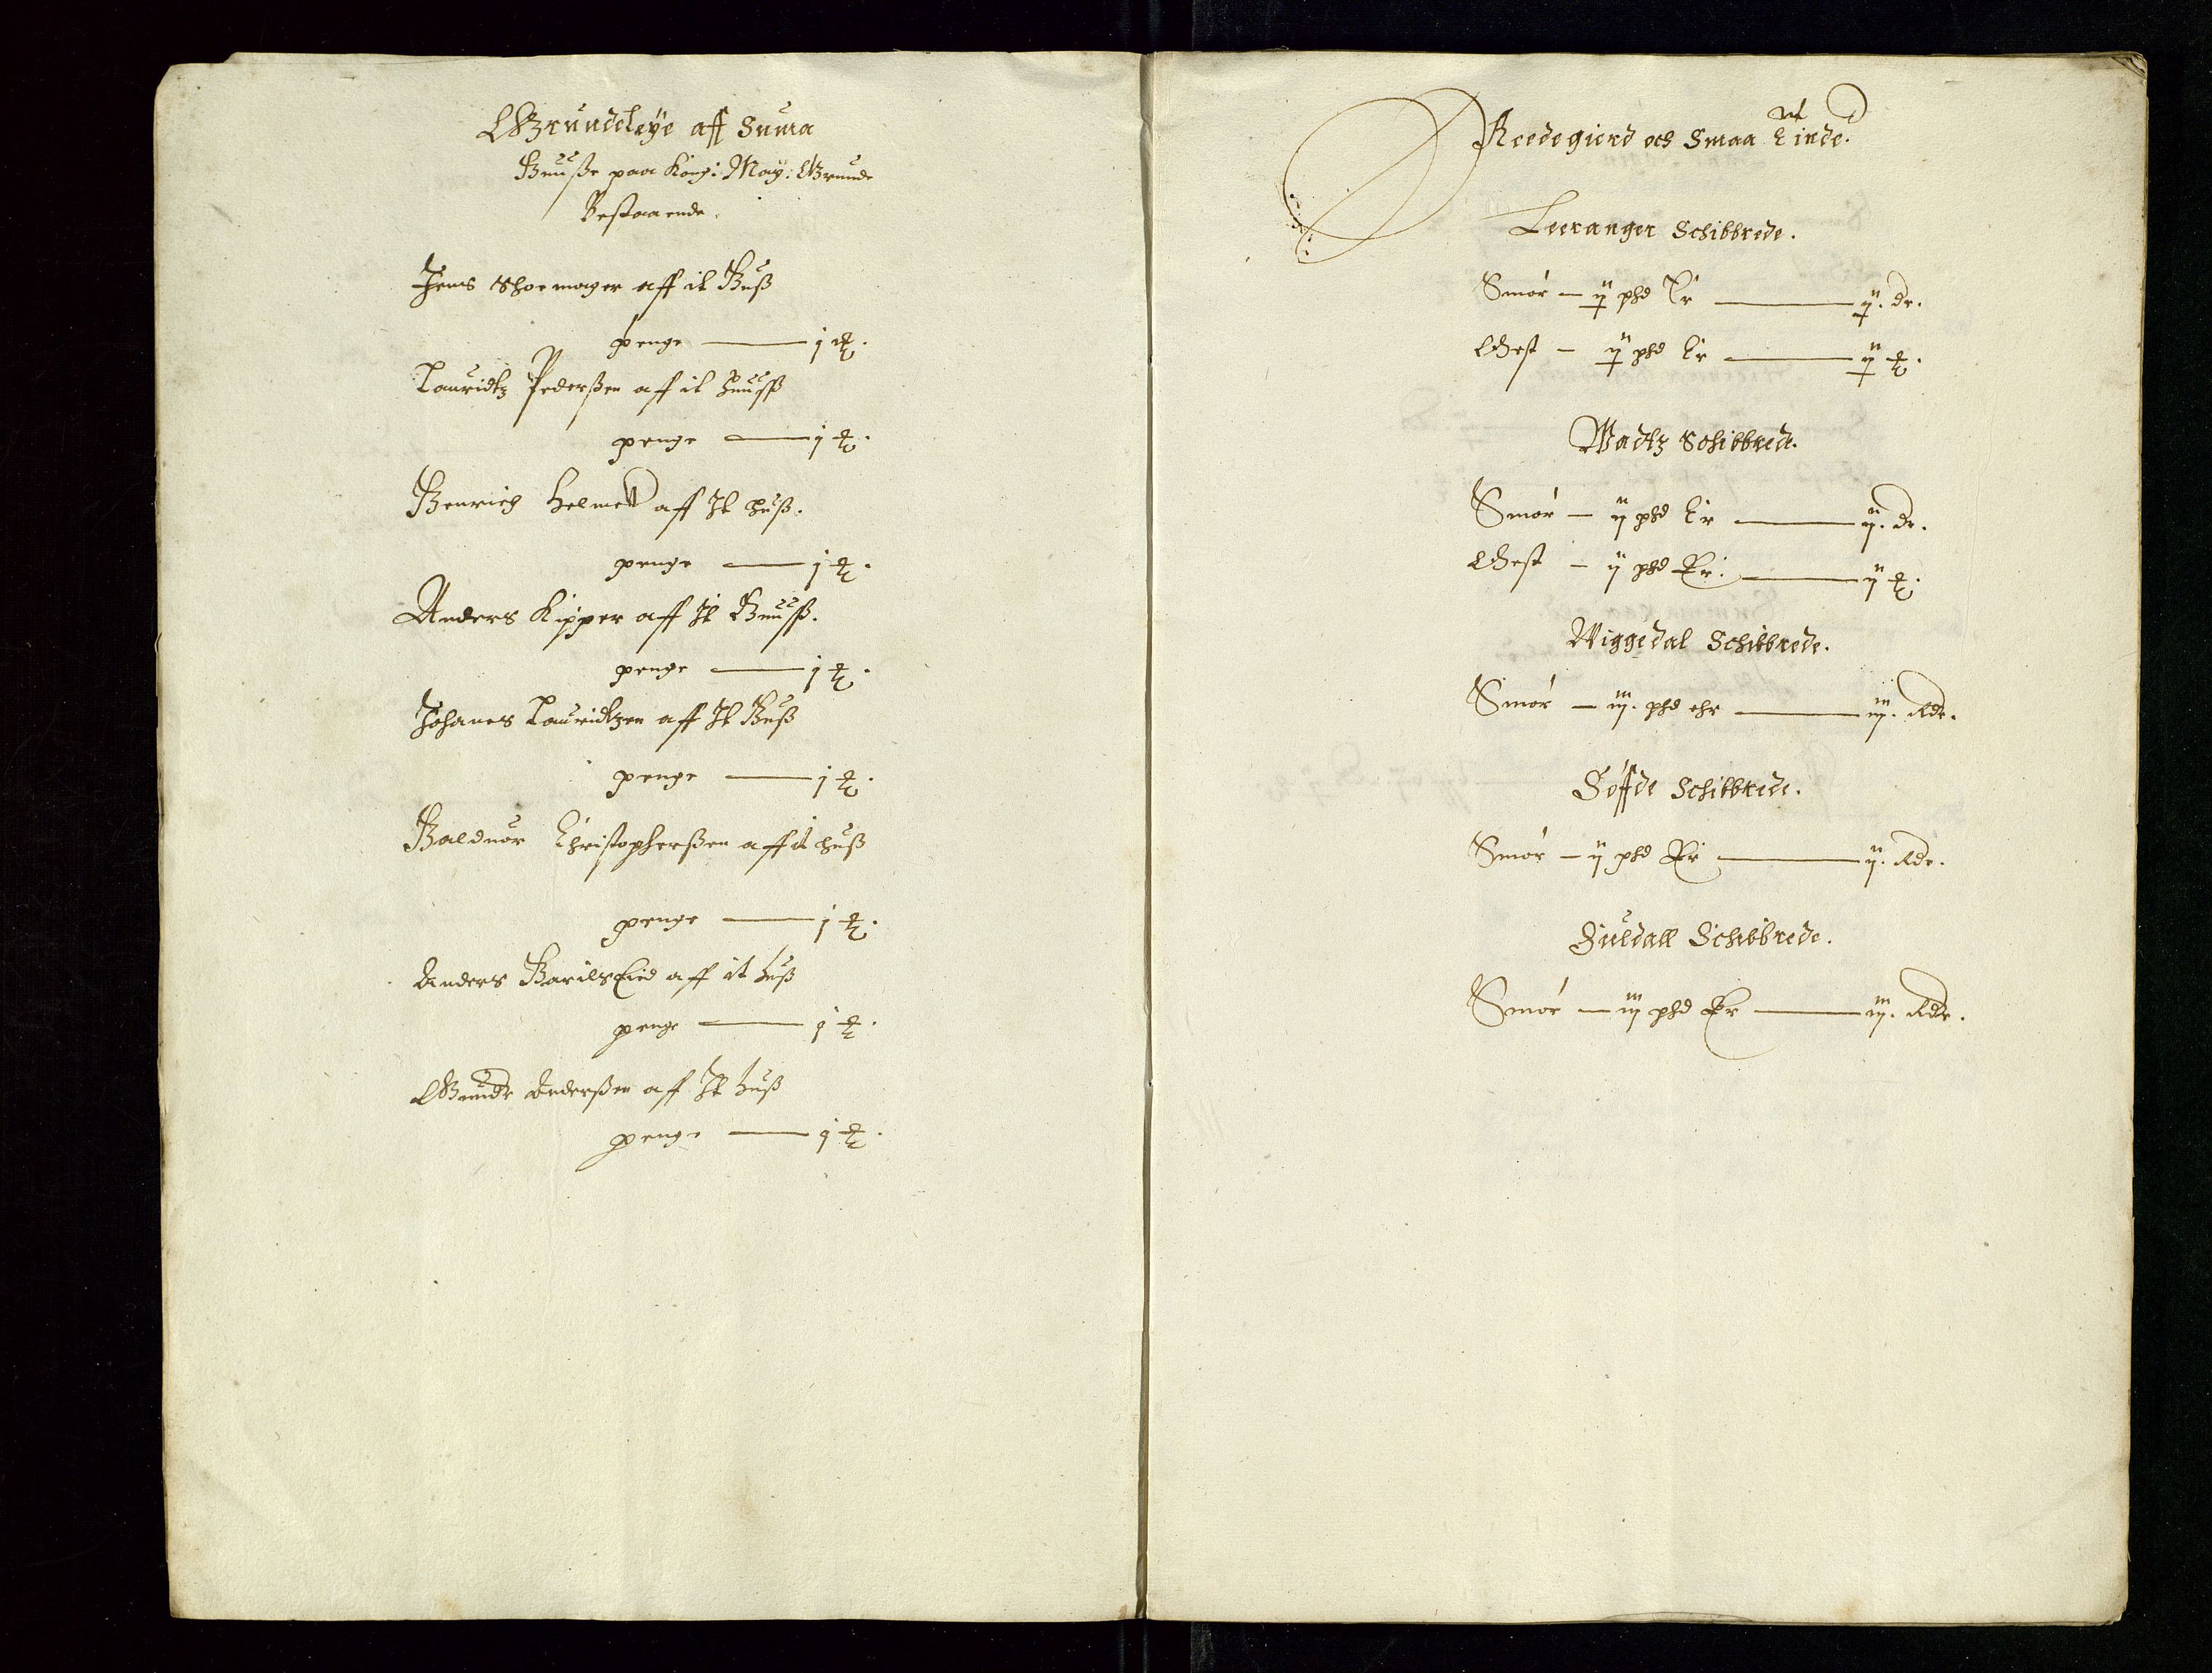 Grundeleye aff Smaa
Huusse paa Kong: May: Grunde
Bestaaende.
Jens Schoemager aff it Huß
penge — j ort.
Lauridtz Pederßen aff it Huuß
penge — j ort.
Henrich Helmett aff It Huß.
penge — j ort.
Anders Kipper aff It Huuß.
penge — j ort.
Johanes Lauridtzen aff It Huß
penge — j ort.
Balduor Christopherßen aff it Huß
penge — j ort.
Anders aff it Huß
penge — j ort.
Anderßen aff It Huß
penge — j ort.
Reedegierd och Smaa Tinde.
Leeranger Schibbrede.
Smør — ij phd — ij. dr.
Giest — ij phd — ij ort.
Wadtz Schibbrede.
Smør — ij phd — ij. dr.
Giest — ij phd — ij ort.
Wiggedal Schibbrede.
Smør — iij. phd — iij. Rdr.
Søffde Schibbrede.
Smør — ij phd — ij. Rdr.
Suldall Schibbrede.
Smør — iij phd — iij. Rdr.